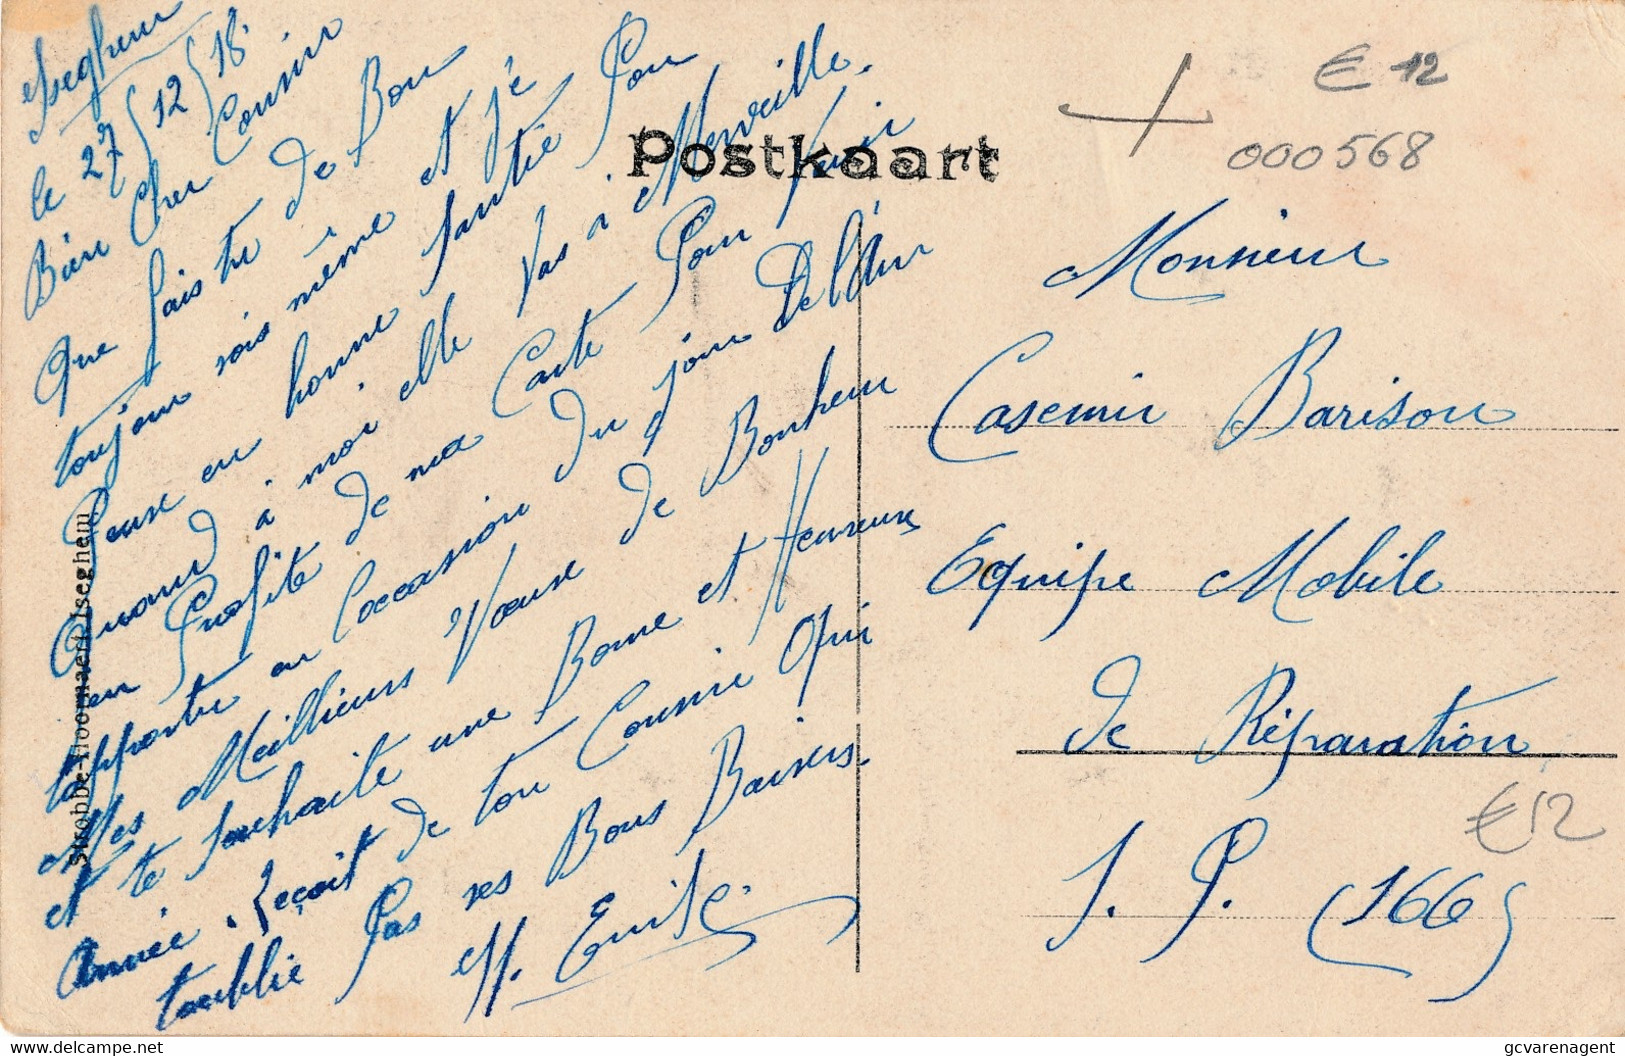 Iseghem
le 27/12/18.
Bien Cher Cousin
Que fais tu de Bon
toujour sois même et je
Pense en bonne santié Pour
Quand à moi elle vas à Merveille.
en Profite de ma Carte Pour Venir
tapporter au loccasion Du jour De l'An
Mes Meillieurs Vœuse de Bonheur
et te souhaite une Bonne et Heureuse
Année. Reçoit de ton Cousin Qui
toublie Pas ses Bons Baisers.
H. Emile.
Postkaart
Strobbe-Hoornaert, Iseghem
€ 12
000568
Monsieur
Casemir Barison
Equipe Mobile
de Réparation
S. P. (166)
€12
gcvarenagent